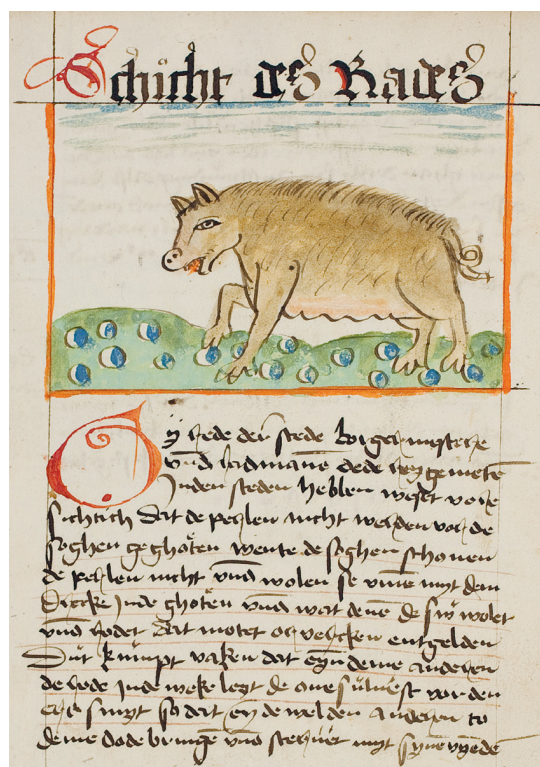 Schicht des Rades
Gy hede der stede borgermestere
vnd radmanne dede
Inden steden hebben weset vore
sichtich dat de perlen nicht werden vor de
soghen geghoten wente de soghen schonen
de perlen nicht vnd wolen se vmme myt dem
drecke Inde ghoten vnd wat deme de swin wolet
vnd hodet dat motet ock entgelden
Dut kumpt vaken dat eyn deme anderen
de hode Inde weke legt de one suluest vor den
ers smyt so dat eyn de welden anderen to
deme dode bringe vnd steruet myt